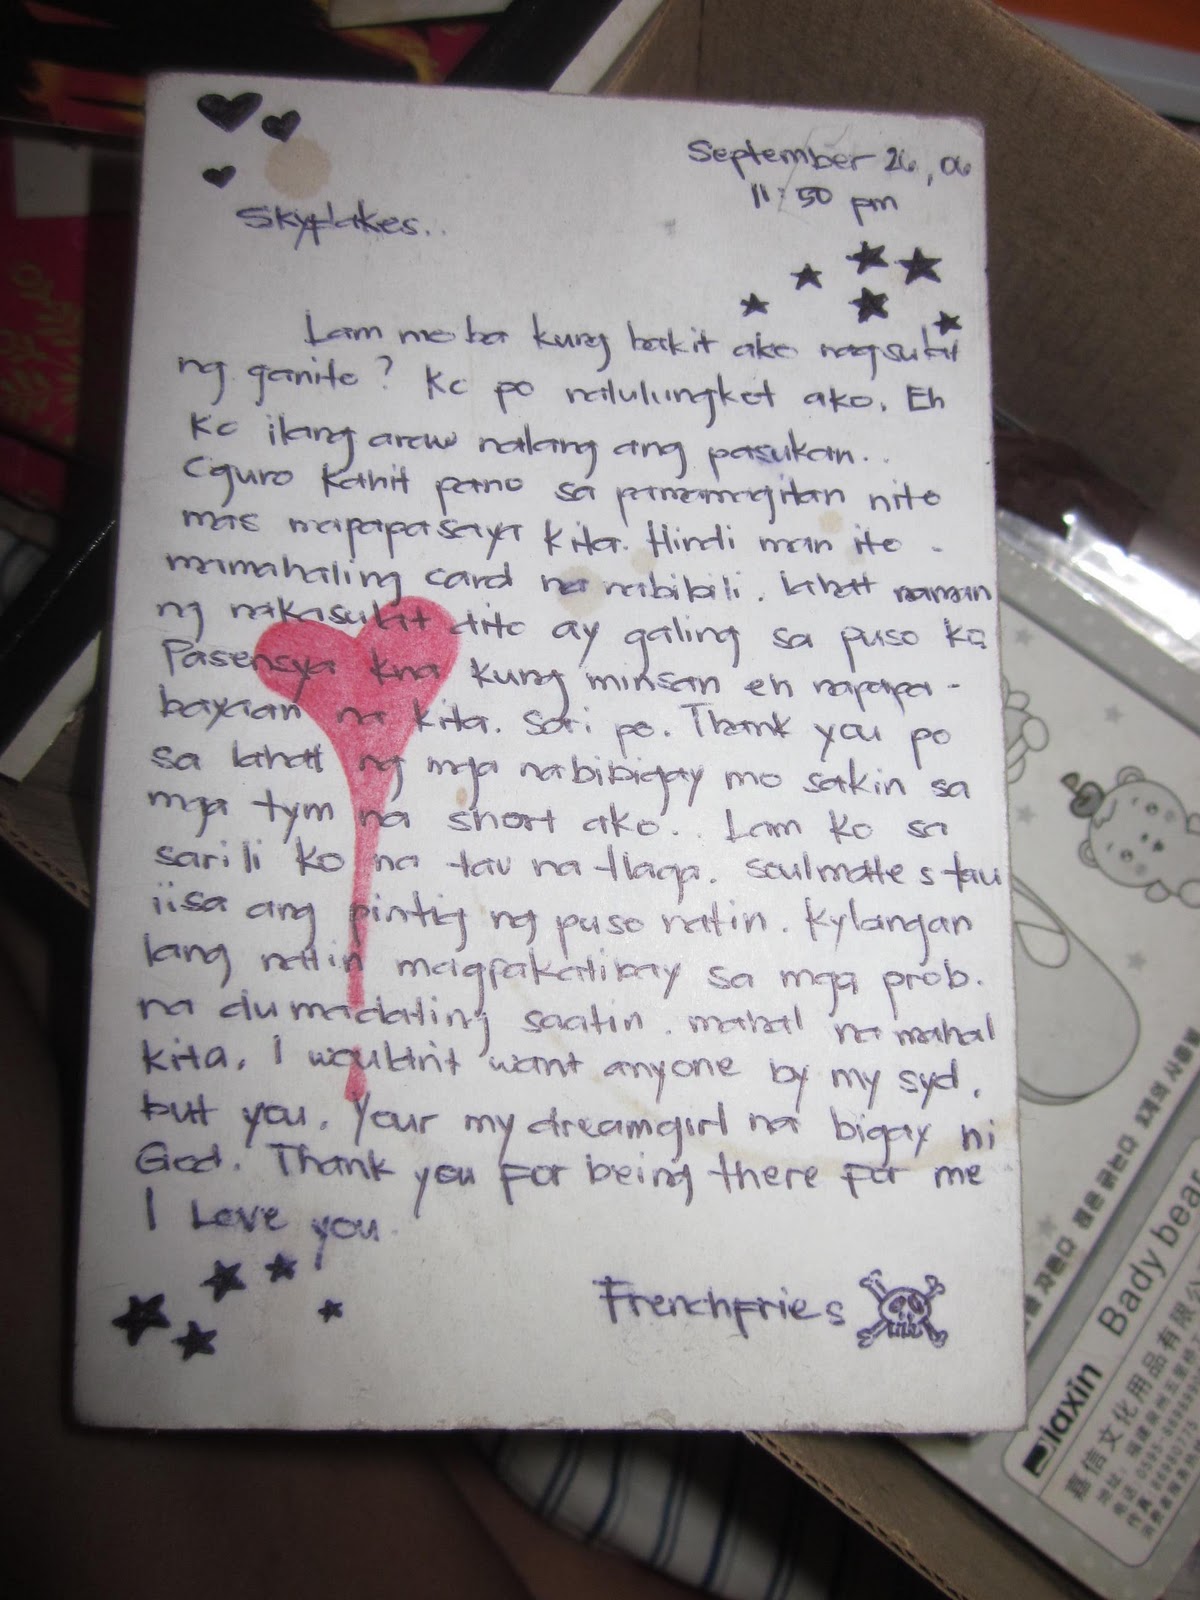 September 26, 06
11:50 pm
Skyflakes..
Lam mo ba kung bakit ako nagsulat
ng ganito? Kc po nalulungkot ako. Eh
Kc ilang araw nalang ang pasukan..
Cguro kahit pano sa pamamagitan nito
mas mapapasaya kita. Hindi man ito
mamahaling card na nabibili. Lahat naman
ng nakasulat dito ay galing sa puso ko
Pasensya kna kung minsan eh napapa-
bayaan na kita. Sori po. Thank you po
sa lahat ng mga nabibigay mo sakin sa
mga tym na short ako.. Lam ko sa
sarili ko na tau na tlaga. Soulmate s tau
iisa ang pintig ng puso natin. Kylangan
lang natin magpakatibay sa mga prob.
na dumadating saatin. mahal na mahal
kita. I wouldn't want anyone by my syd,
but you. Your my dreamgirl na bigay ni
God. Thank you for being there for me
I Love you.
Frenchfries
Bady bear
Diaxin
嘉信文化用品有限公